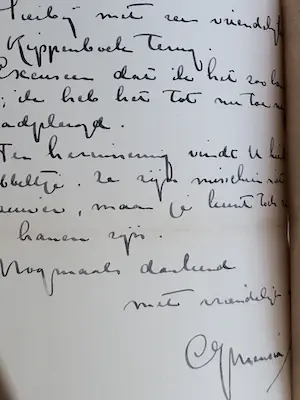 Hierbij met een vriendelijk
Kippenboek terug.
Excuseer dat ik het zoo la
; ik heb het tot nu toe
aadpleegd.
Ter herinnering vindt U hi
bbeltje. Ze zijn misschien
, maar je kunt toch
hanen zijn.
Nogmaals dankend
met vriendelijk